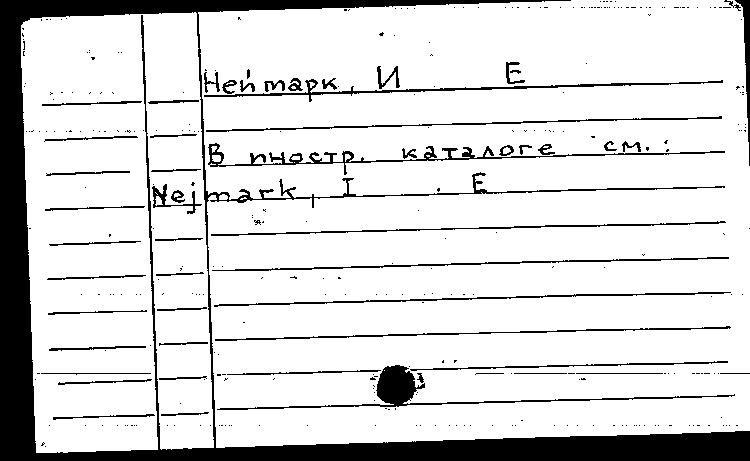 Неймарк, И Е
В иностр. каталоге см.:
Nejmark, I . E